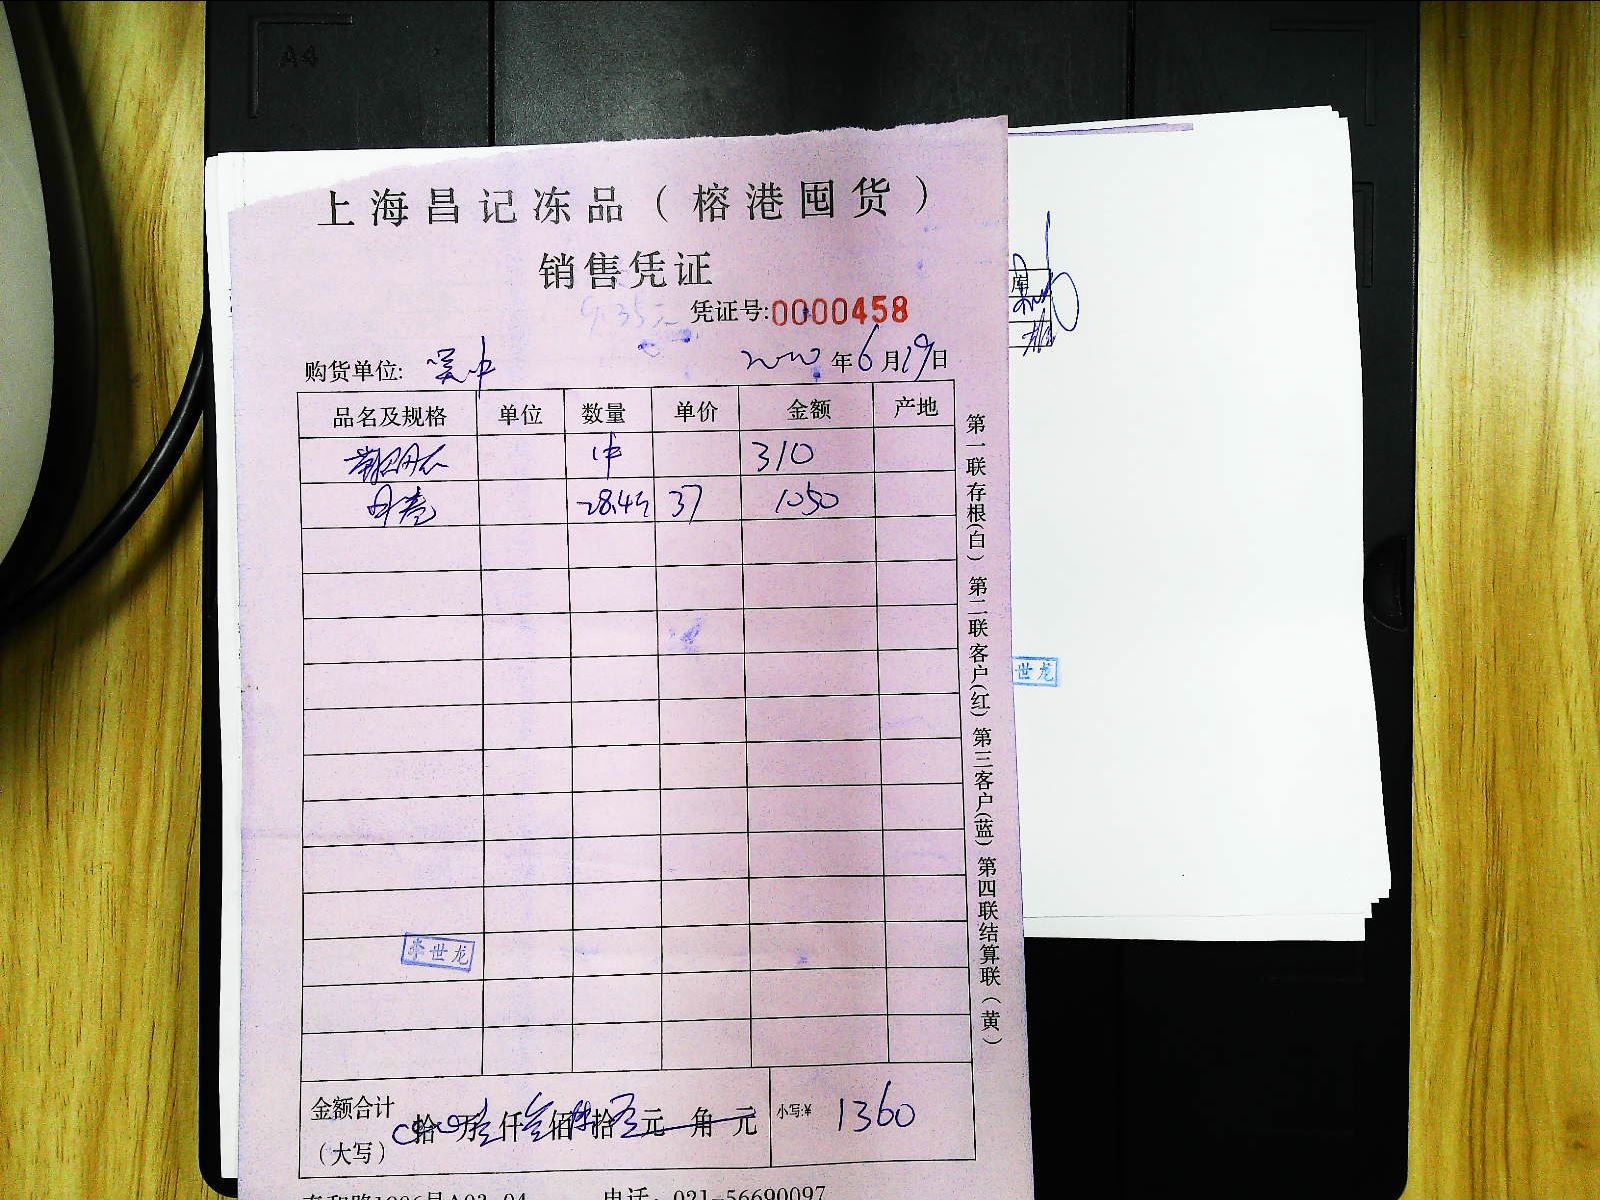 A4
上海昌记冻品（榕港囤货）
销售凭证
凭证号:0000458
购货单位: 吴中 2020年6月19日
品名及规格 单位 数量 单价 金额 产地
1件 310
28.4斤 37 1050
第一联存根(白) 第二联客户(红) 第三客户(蓝) 第四联结算联(黄)
李世龙
世龙
金额合计
（大写） 拾 万 仟 佰 拾 元 角 元 小写:¥ 1360
电话: 021-56690097